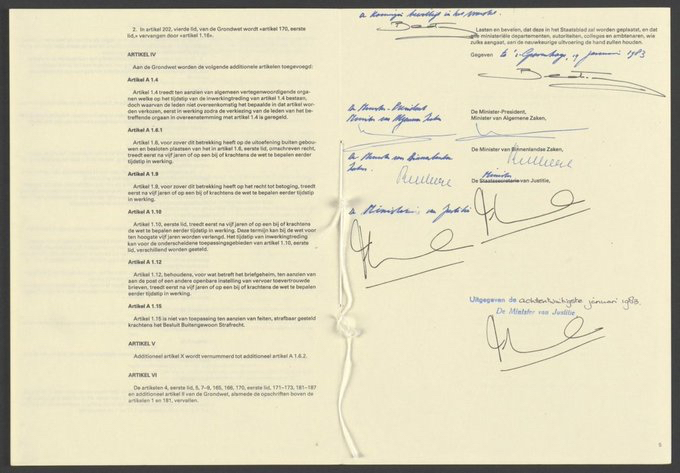 2. In artikel 202, vierde lid, van de Grondwet wordt «artikel 170, eerste
lid,» vervangen door «artikel 1.16».
ARTIKEL IV
Aan de Grondwet worden de volgende additionele artikelen toegevoegd:
Artikel A 1.4
Artikel 1.4 treedt ten aanzien van algemeen vertegenwoordigende orga-
nen welke op het tijdstip van de inwerkingtreding van artikel 1.4 bestaan,
doch waarvan de leden niet overeenkomstig het bepaalde in dat artikel wor-
den verkozen, eerst in werking zodra de verkiezing van de leden van het be-
treffende orgaan in overeenstemming met artikel 1.4 is geregeld.
Artikel A 1.6.1
Artikel 1.8, voor zover dit betrekking heeft op de uitoefening buiten gebou-
wen en besloten plaatsen van het in artikel 1.6, eerste lid, omschreven recht,
treedt eerst na vijf jaren of op een bij of krachtens de wet te bepalen eerder
tijdstip in werking.
Artikel A 1.9
Artikel 1.9, voor zover dit betrekking heeft op het recht tot betoging, treedt
eerst na vijf jaren of op een bij of krachtens de wet te bepalen eerder tijdstip
in werking.
Artikel A 1.10
Artikel 1.10, eerste lid, treedt eerst na vijf jaren of op een bij of krachtens
de wet te bepalen eerder tijdstip in werking. Deze termijn kan bij de wet voor
ten hoogste vijf jaren worden verlengd. Het tijdstip van inwerkingtreding
kan voor de onderscheidene toepassingsgebieden van artikel 1.10, eerste
lid, verschillend worden gesteld.
Artikel A 1.12
Artikel 1.12, behoudens, voor wat betreft het briefgeheim, ten aanzien van
aan de post of een andere openbare instelling van vervoer toevertrouwde
brieven, treedt eerst na vijf jaren of op een bij of krachtens de wet te bepalen
eerder tijdstip in werking.
Artikel A 1.15
Artikel 1.15 is niet van toepassing ten aanzien van feiten, strafbaar gesteld
krachtens het Besluit Buitengewoon Strafrecht.
ARTIKEL V
Additioneel artikel X wordt vernummerd tot additioneel artikel A 1.6.2.
ARTIKEL VI
De artikelen 4, eerste lid, 5, 7–9, 165, 166, 170, eerste lid, 171–173, 181–187
en additioneel artikel II van de Grondwet, alsmede de opschriften boven de
artikelen 1 en 181, vervallen.
de Koningin bewilligt in het
Lasten en bevelen, dat deze in het Staatsblad zal worden geplaatst, en dat
de ministeriële departementen, autoriteiten, colleges en ambtenaren, wie
zulks aangaat, aan de nauwkeurige uitvoering de hand zullen houden.
Gegeven te 's-Gravenhage, 19 januari 1983
de Minister-President
Minister van Algemene Zaken
De Minister-President,
Minister van Algemene Zaken,
de Minister van Binnenlandse
Zaken.
De Minister van Binnenlandse Zaken,
Minister
De Staatssecretaris van Justitie,
de Minister van Justitie
Uitgegeven de achtentwintigste januari 1983.
De Minister van Justitie
5